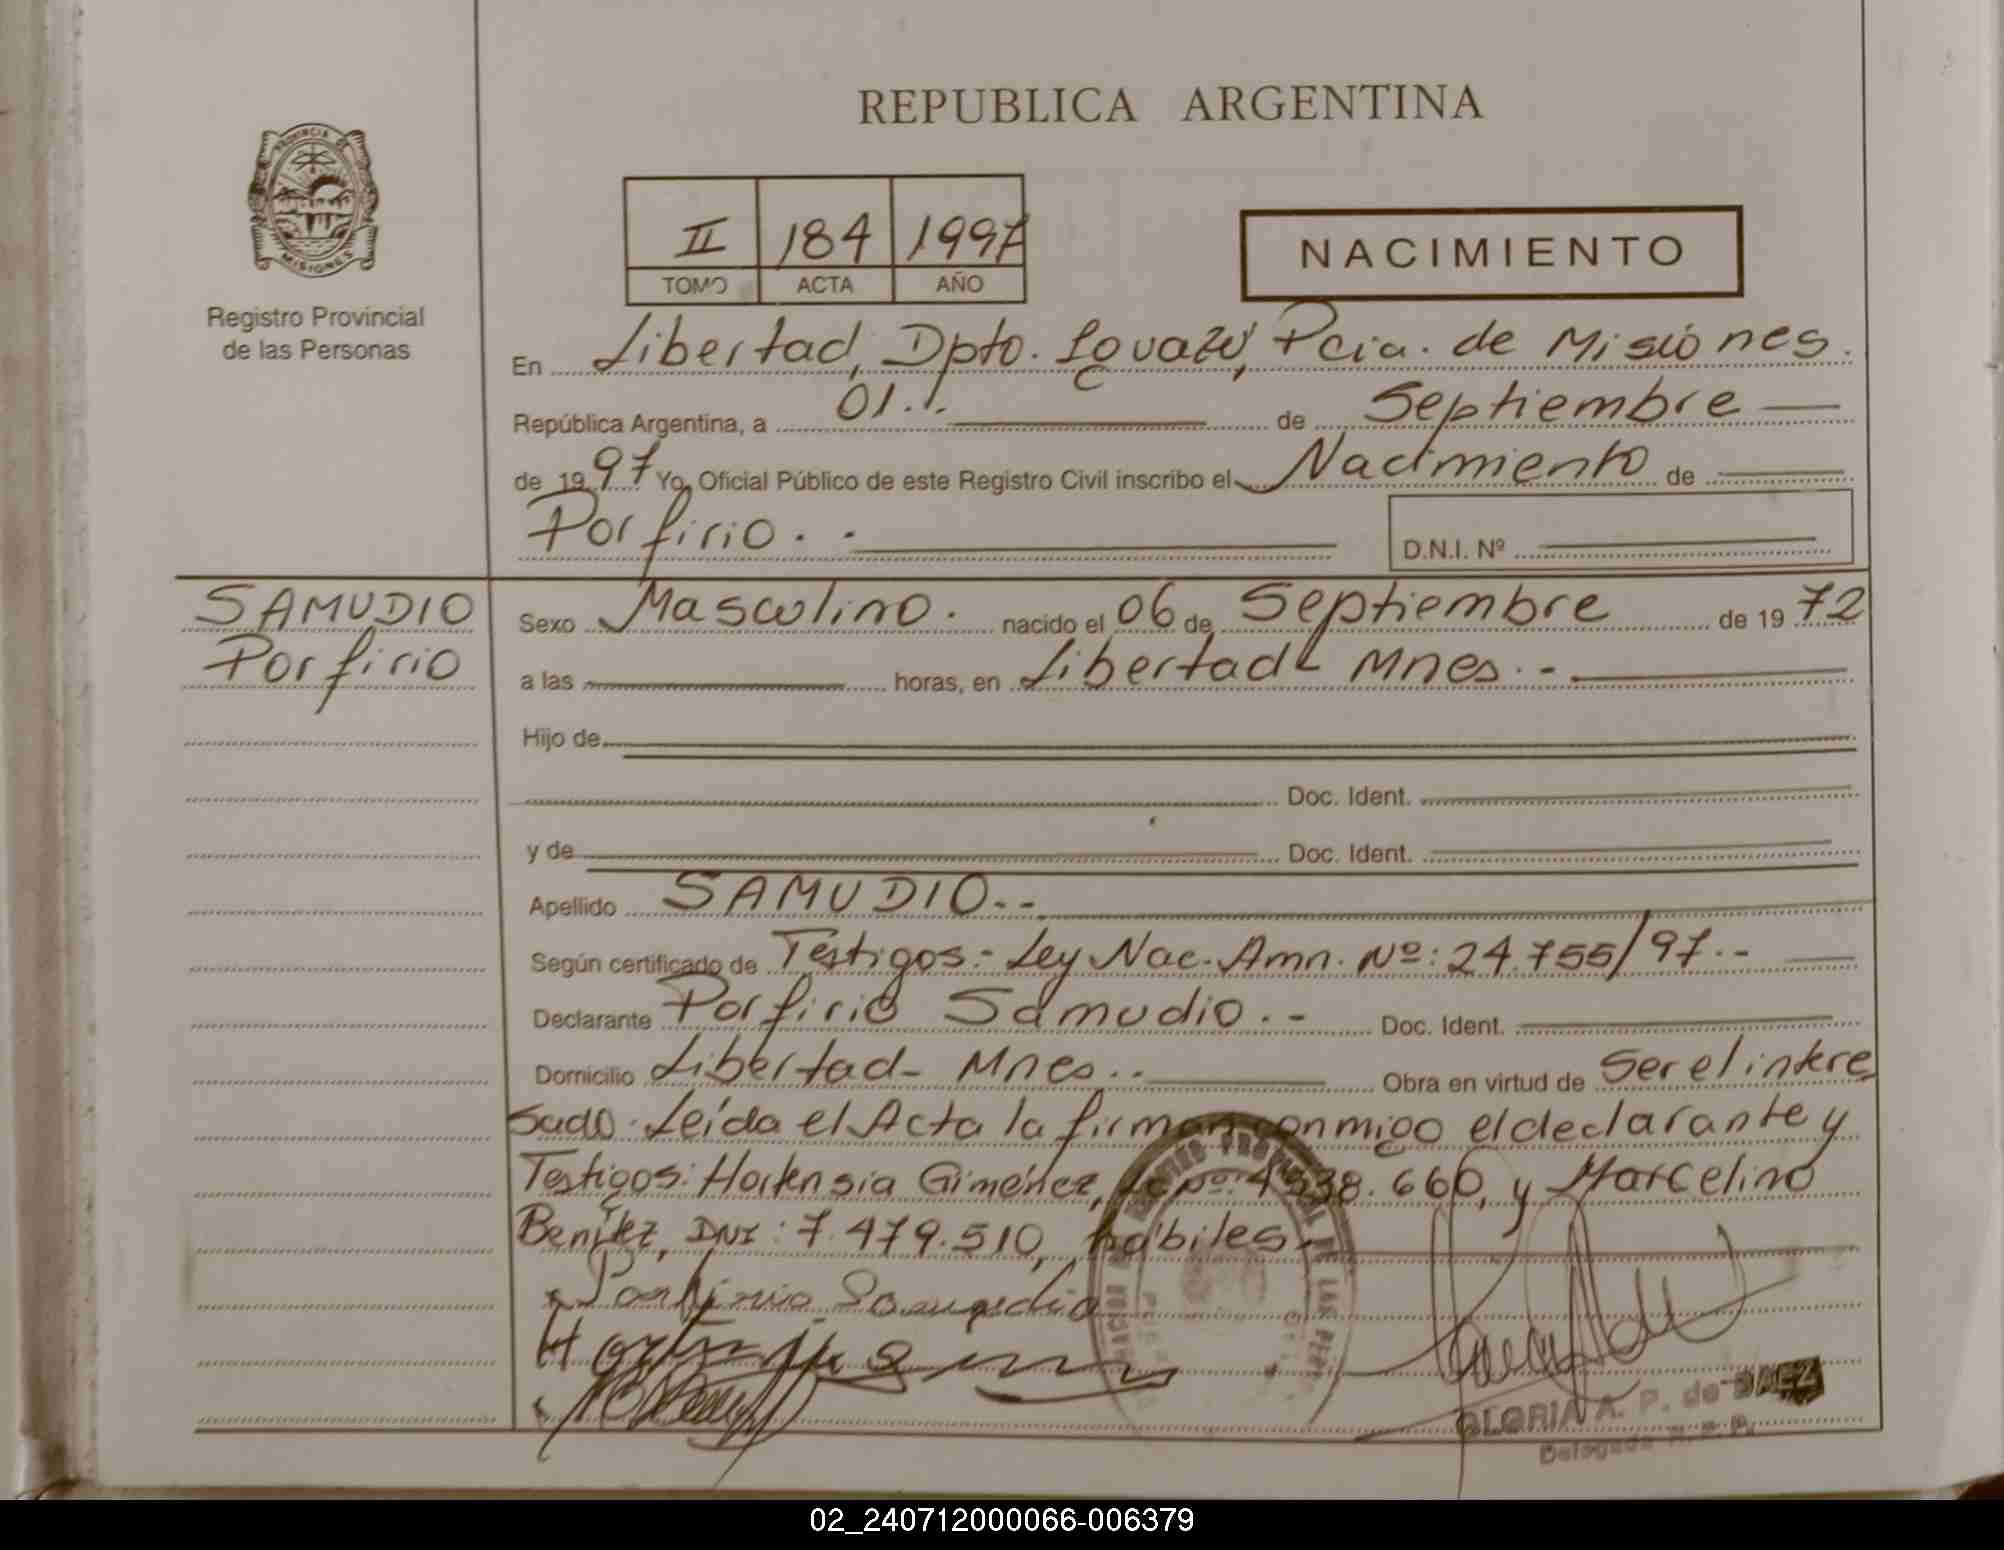 REPUBLICA ARGENTINA
PROVINCIA DE
MISIONES
Registro Provincial
de las Personas
II 184 1997
TOMO ACTA AÑO
NACIMIENTO
En Libertad, Dpto. Iguazú, Pcia. de Misiones.
República Argentina, a 01.. de Septiembre
de 1997 Yo, Oficial Público de este Registro Civil inscribo el Nacimiento de
Porfirio. -
D.N.I. Nº
SAMUDIO
Porfirio
Sexo Masculino. nacido el 06 de Septiembre de 1972
a las horas, en Libertad - Mnes. -
Hijo de
Doc. Ident.
y de Doc. Ident.
Apellido SAMUDIO. -
Según certificado de Testigos.- Ley Nac. Amn. Nº: 24.755/97. -
Declarante Porfirio Samudio. - Doc. Ident.
Domicilio Libertad - Mnes. - Obra en virtud de Ser el intere
sado. Leída el Acta la firman conmigo el declarante y
Testigos: Hortensia Giménez, Nº: 4.938.660, y Marcelino
Benítez, DNI: 7.479.510, hábiles.
Porfirio Samudio
GLORIA A. P. de BAEZ
Delegada R. P. P.
02_240712000066-006379